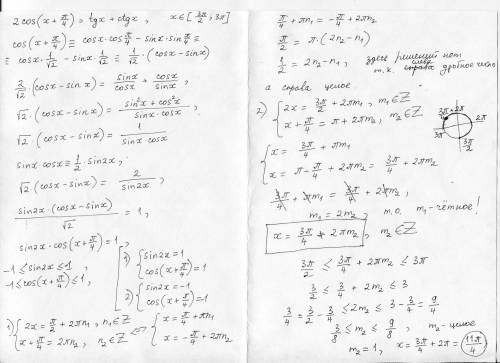 2cos(x+π/4) = tgx + ctgx , x∈[3π/2 ; 3π]
cos(x+π/4) ≡ cosx·cos π/4 − sinx·sin π/4 ≡
≡ cosx·1/√2 − sinx·1/√2 ≡ 1/√2·(cosx − sinx)
2/√2·(cosx − sinx) = sinx/cosx + cosx/sinx ,
√2·(cosx − sinx) = (sin²x + cos²x)/(sinx·cosx) ,
√2(cosx − sinx) = 1/(sinx·cosx)
sinx cosx ≡ 1/2·sin2x ,
√2·(cosx − sinx) = 2/sin2x ,
sin2x·(cosx − sinx)/√2 = 1 ,
sin2x·cos(x+π/4) = 1 ,
−1 ≤ sin2x ≤ 1 ,
−1 ≤ cos(x+π/4) ≤ 1 ,
1) { sin2x = 1
cos(x+π/4) = 1
2) { sin2x = −1
cos(x+π/4) = 1
1) { 2x = π/2 + 2πn₁ , n₁∈Z
x + π/4 = 2πn₂ , n₂∈Z
⇔ { x = π/4 + πn₁
x = −π/4 + 2πn₂
π/4 + πn₁ = −π/4 + 2πn₂
π/2 = π·(2n₂ − n₁)
1/2 = 2n₂ − n₁ , здесь решений нет
т.к. слева дробное число
а справа целое.
2) { 2x = 3π/2 + 2πm₁ , m₁∈Z
x + π/4 = π + 2πm₂ , m₂∈Z
{ x = 3π/4 + πm₁
x = π − π/4 + 2πm₂ = 3π/4 + 2πm₂
3π/4 + πm₁ = 3π/4 + 2πm₂ ,
m₁ = 2m₂ , т.о. m₁ – чётное!
x = 3π/4 + 2πm₂ , m₂∈Z
3π/4 + 2π
2π
3π
3π/2
3π/2 ≤ 3π/4 + 2πm₂ ≤ 3π
3/2 ≤ 3/4 + 2m₂ ≤ 3
3/4 = 3/2 − 3/4 ≤ 2m₂ ≤ 3 − 3/4 = 9/4
3/8 ≤ m₂ ≤ 9/8 , m₂ – целое
m₂ = 1 , x = 3π/4 + 2π = 11π/4